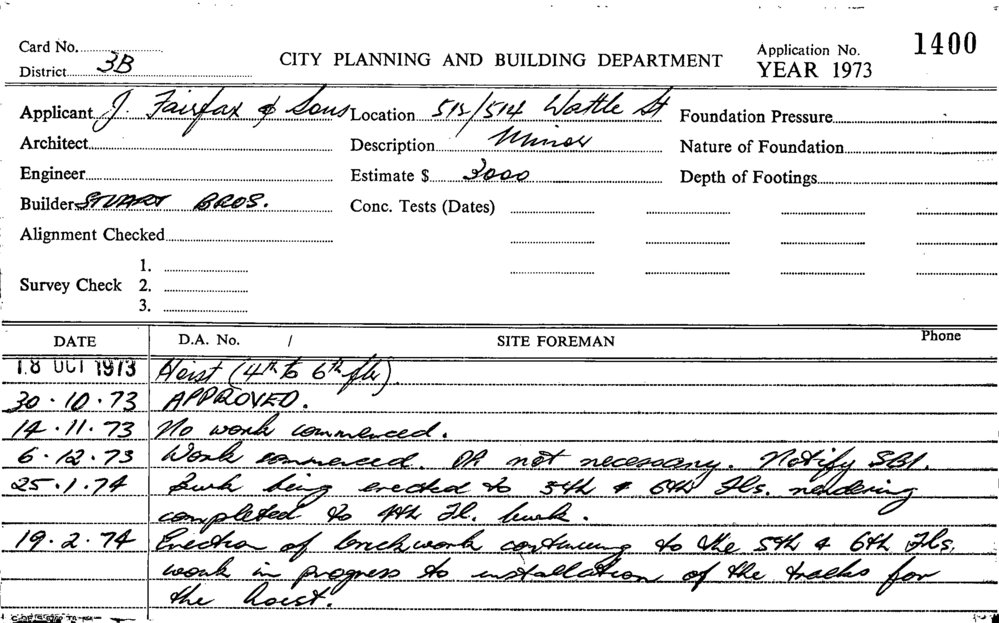 Card No.
District 3B
CITY PLANNING AND BUILDING DEPARTMENT
Application No. 1400
YEAR 1973
Applicant J. Fairfax & Sons
Location 512/514 Wattle St
Foundation Pressure
Architect
Description Minor
Nature of Foundation
Engineer
Estimate $ 3000
Depth of Footings
Builder STUART BROS.
Conc. Tests (Dates)
Alignment Checked
Survey Check 1.
2.
3.
DATE D.A. No. / SITE FOREMAN Phone
18 OCT 1973 Hoist (4th to 6th flr)
30.10.73 APPROVED.
14.11.73 No work commenced.
6.12.73 Work commenced. DA not necessary. Notify SBI.
25.1.74 bwk being erected to 5th & 6th Fls. rendering
completed to 4th Fl. bwk.
19.2.74 Erection of brickwork continuing to the 5th & 6th Fls.
work in progress to installation of the tracks for
the hoist.